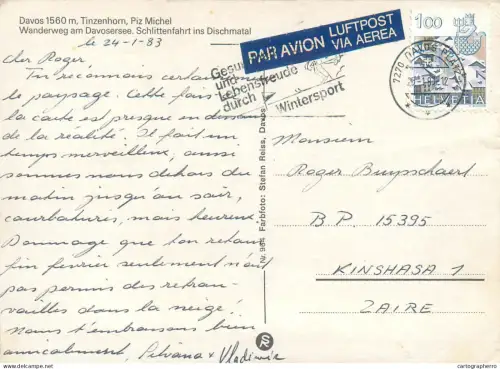 Davos 1560 m, Tinzenhorn, Piz Michel
Wanderweg am Davosersee. Schlittenfahrt ins Dischmatal
le 24-1-83
cher Roger,
Tu reconnais certainement
le paysage. Cette fois
la carte est presque en dessous
de la réalité. Il fait un
temps merveilleux, aussi
sommes nous dehors du
matin jusqu'au soir,
courbaturés, mais heureux.
Dommage que ton retour
fin février seulement n'ait
pas permis des retrou-
vailles dans la neige!
Nous t'embrassons bien
amicalement, Silvana + Vladimir
PAR AVION LUFTPOST
VIA AEREA
Gesun
und
Lebensfreude
durch
Wintersport
7270 DAVOS PLATZ
100
HELVETIA
Nr. 994 Farbfoto: Stefan Reiss, Davos
Monsieur
Roger Buysschaert
B.P. 15395
KINSHASA 1
ZAIRE
delcampe.net